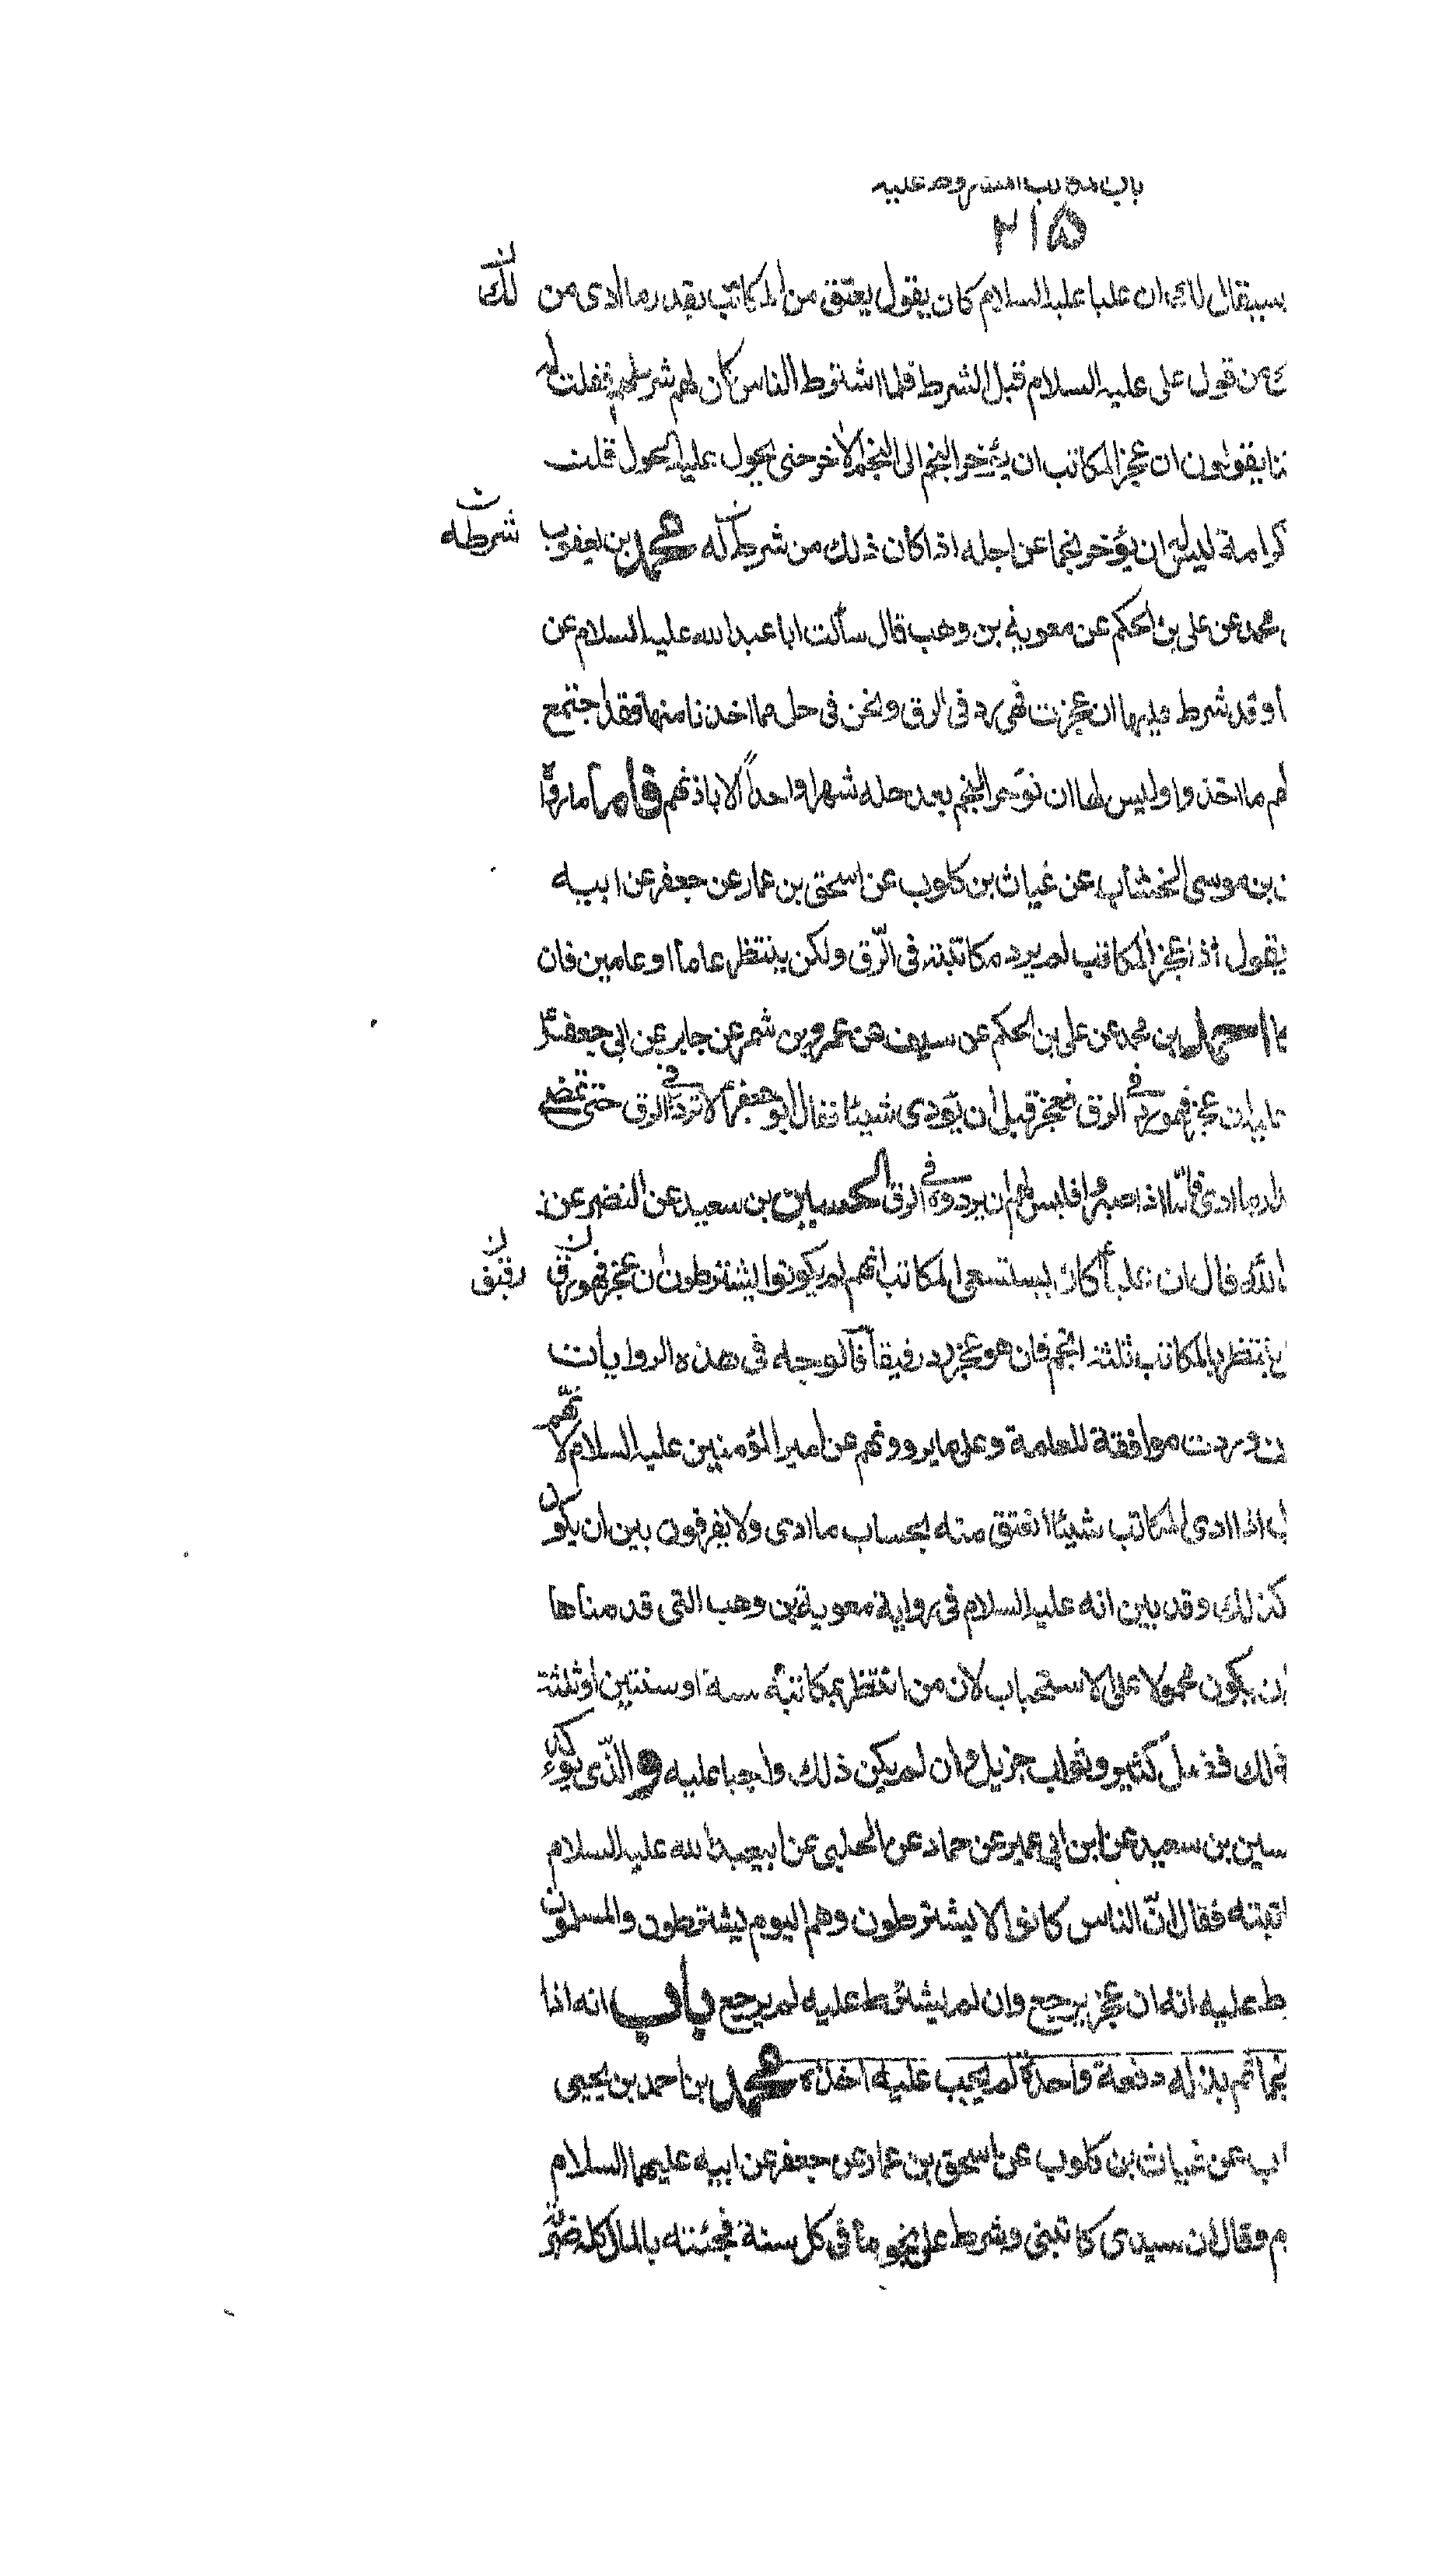 باب المكاتب المشروط عليه
٢١٥
ان عليا عليه السلام كان يقول يعتق من المكاتب بقدر ما ادى من
ذلك
من قول على عليه السلام قبل الشرط فلما اشترط الناس كان لهم شرطهم فقلت له
يقولون ان عجز المكاتب ان يؤخر النجم الى النجم الاخر حتى يحول عليه الحول قلت
كرامة ليس له ان يؤخر نجما عن اجله اذا كان ذلك من شرط له محمد بن يعقوب
شرطه
محمد عن على بن الحكم عن معوية بن وهب قال سألت ابا عبد الله عليه السلام عن
وقد شرط عليها ان عجزت فهى رد فى الرق ونحن فى حل مما اخذنا منها فقد اجتمع
لهم ما اخذوا وليس لها ان تؤخر النجم بعد حله شهرا واحدا الا باذنهم فاما ما رواه
بن موسى الخشاب عن غياث بن كلوب عن اسحق بن عمار عن جعفر عن ابيه
يقول اذا عجز المكاتب لم يرد مكاتبته فى الرّق ولكن ينتظر عاما او عامين فان
احمد بن محمد عن على بن الحكم عن سيف عن عمرو بن شمر عن جابر عن ابى جعفر ع
ان عجز فهو رد فى الرق فعجز قبل ان يؤدى شيئا فقال ابو جعفر ع لا ترده فى الرق حتى تمضى
ما ادى فامّا اذا صبروا فليس لهم ان يردوه فى الرق الحسين بن سعيد عن النضر عن
قال ان عليا ع كان يستسعى المكاتب انهم لم يكونوا يشترطون ان عجز فهو رق
رقيق
ينتظر بالمكاتب ثلثة انجم فان هو عجز رد رقيقا فالوجه فى هذه الروايات
وردت موافقة للعامة وعلى ما يروونهم عن امير المؤمنين عليه السلام لانّهم
اذا ادى المكاتب شيئا انعتق منه بحساب ما ادى ولا يفرقون بين ان يكون
كذلك وقد بين انه عليه السلام فى رواية معوية بن وهب التى قدمناها
ان يكون محمولا على الاستحباب لان من انتظر بمكاتبه سنة او سنتين او ثلثة
ذلك فضل كثير وثواب جزيل وان لم يكن ذلك واجبا عليه والّذى يؤكد
سين بن سعيد عن ابن ابى عمير عن حماد عن الحلبى عن ابى عبد الله عليه السلام
فقال انّ الناس كانوا لا يشترطون وهم اليوم يشترطون والمسلمون
ط عليه انه ان عجز يرجع وان لم يشترط عليه لم يرجع باب انه اذا
نجما ثم بذله دفعة واحدة لم يجب عليه اخذه محمد بن احمد بن يحيى
اب عن غياث بن كلوب عن اسحق بن عمار عن جعفر عن ابيه عليهما السلام
وقال ان سيدى كاتبنى وشرط على نجوما فى كل سنة فجئته بالمال كله ضربة